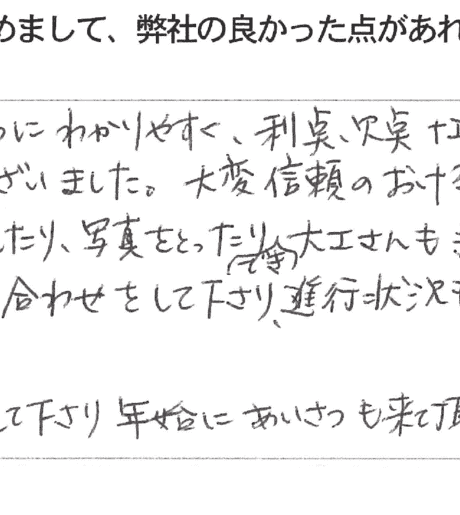 めまして、弊社の良かった点があれ
にわかりやすく、利点、欠点
ざいました。大変信頼のおける
したり、写真をとったり大工さんも
(できき)
合わせをして下さり、進行状況も
して下さり年始にあいさつも来て頂